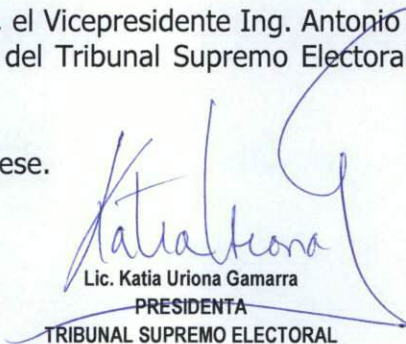 el Vicepresidente Ing. Antonio
del Tribunal Supremo Electora
ese.
Katia Uriona
Lic. Katia Uriona Gamarra
PRESIDENTA
TRIBUNAL SUPREMO ELECTORAL